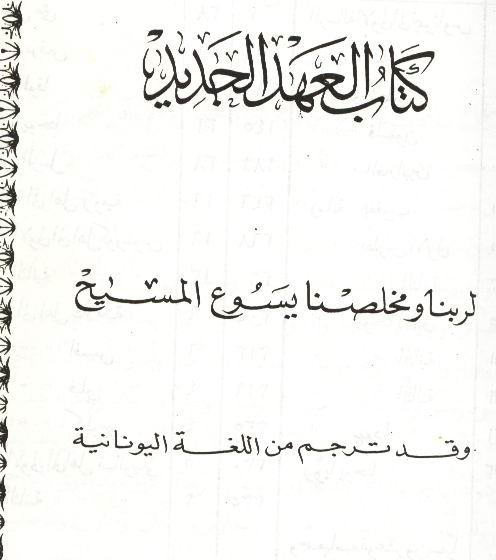 كتاب العهد الجديد
لربنا ومخلصنا يسوع المسيح
وقد ترجم من اللغة اليونانية